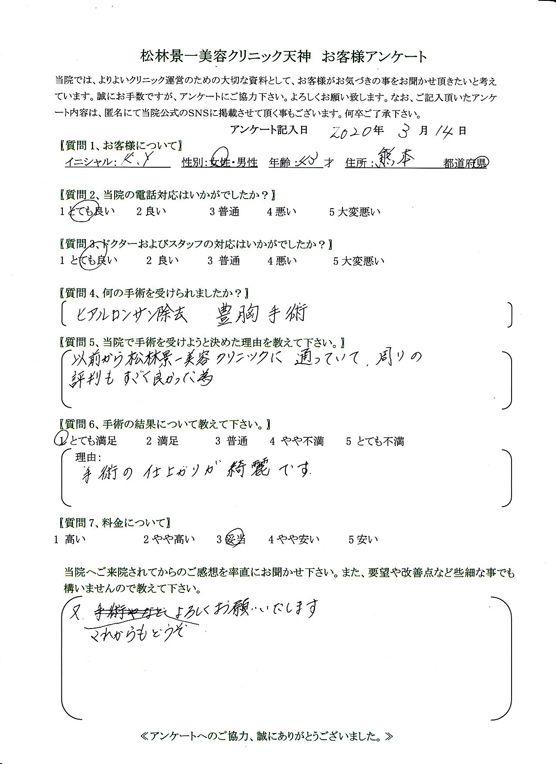 松林景一美容クリニック天神　お客様アンケート
当院では、よりよいクリニック運営のための大切な資料として、お客様がお気づきの事をお聞かせ頂きたいと考え
ています。誠にお手数ですが、アンケートにご協力下さい。よろしくお願い致します。なお、ご記入頂いたアンケ
ート内容は、匿名にて当院公式のSNSに掲載させて頂く事もございます。何卒ご了承下さい。
アンケート記入日　2020年 3月 14日
【質問1、お客様について】
イニシャル： K.Y　性別：女性・男性　年齢：　才　住所： 熊本　都道府県
【質問2、当院の電話対応はいかがでしたか？】
1 とても良い　2 良い　3 普通　4 悪い　5 大変悪い
【質問3、ドクターおよびスタッフの対応はいかがでしたか？】
1 とても良い　2 良い　3 普通　4 悪い　5 大変悪い
【質問4、何の手術を受けられましたか？】
ヒアルロンサン除去　豊胸手術
【質問5、当院で手術を受けようと決めた理由を教えて下さい。】
以前から松林景一美容クリニックに通っていて、周りの
評判もすごく良かった為
【質問6、手術の結果について教えて下さい。】
1 とても満足　2 満足　3 普通　4 やや不満　5 とても不満
理由：
手術の仕上がりが綺麗です。
【質問7、料金について】
1 高い　2 やや高い　3 妥当　4 やや安い　5 安い
当院へご来院されてからのご感想を率直にお聞かせ下さい。また、要望や改善点など些細な事でも
構いませんので教えて下さい。
又 手術やなどよろしくお願いいたします
これからもどうぞ
≪アンケートへのご協力、誠にありがとうございました。≫